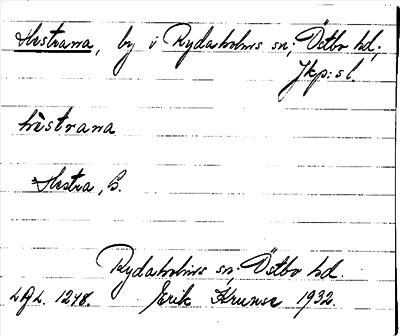 Hestrana, by i Rydaholms sn; Östbo hd;
Jkp:s l.
hèstrana
Hestra, B.
Rydaholms sn; Östbo hd.
LAL. 1248. Erik Krunse 1932.